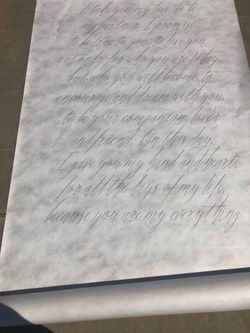 I take you my love to be
my partner. I promise
to be true to you, to love you
not only for who you are today
but who you will become, to
encourage and dream with you,
to be your companion, lover
and friend. On this day,
I give you my hand and heart
for all the days of my life,
because you are my everything.